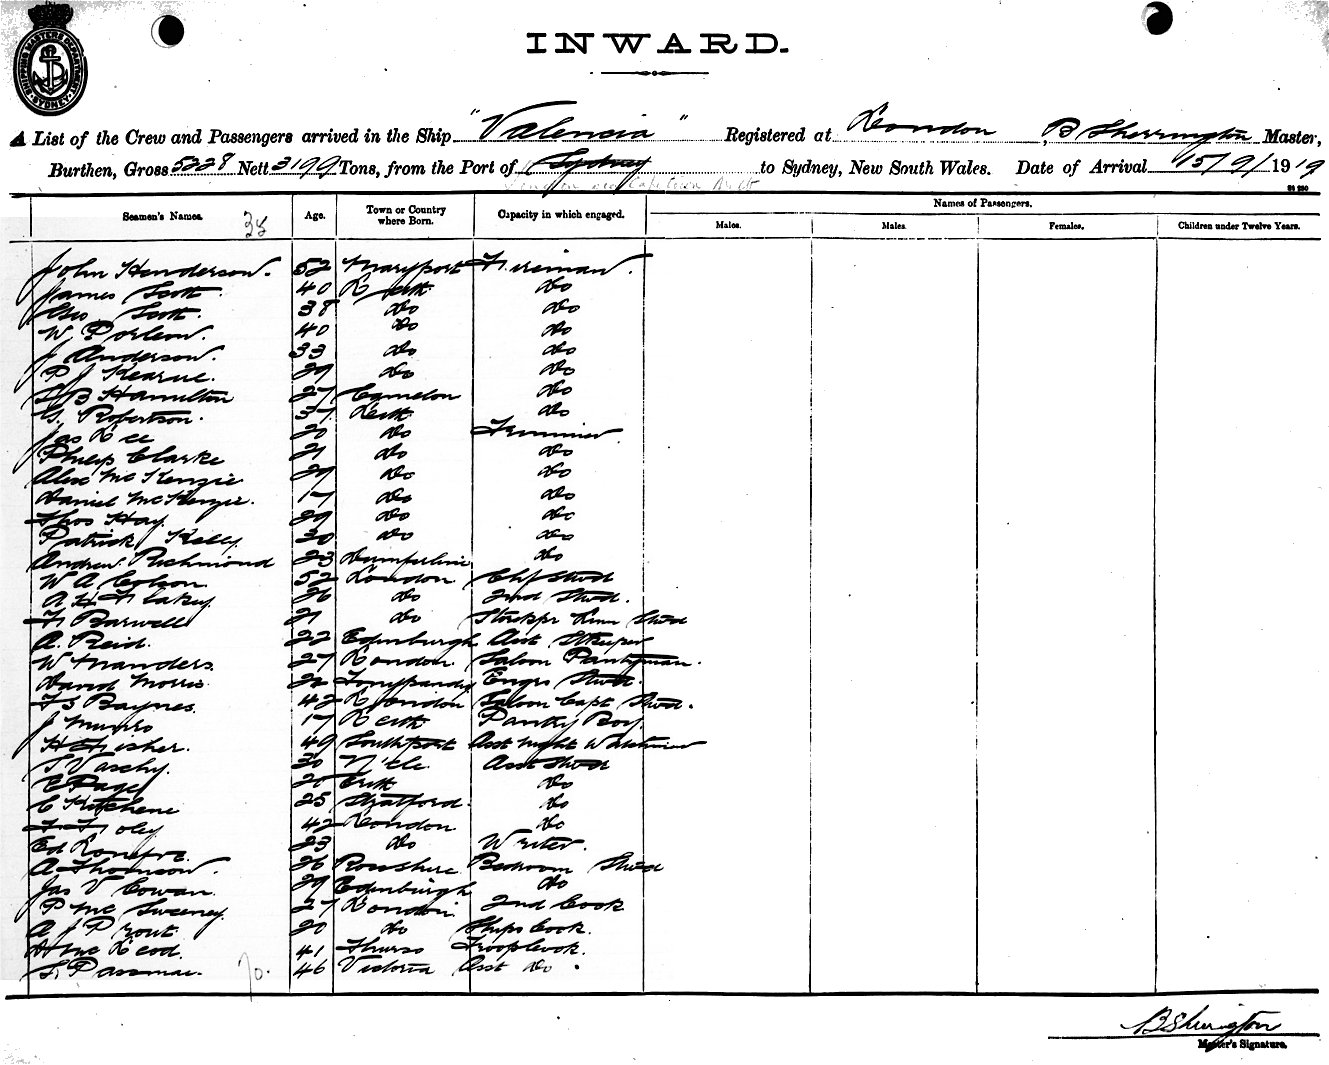 SHIPPING MASTERS DEPARTMENT SYDNEY
INWARD.
A List of the Crew and Passengers arrived in the Ship "Valencia" Registered at London, B Sherrington Master,
Burthen, Gross 5228 Nett 3199 Tons, from the Port of Sydney to Sydney, New South Wales. Date of Arrival 15/9/1919
London via Capetown
Seamen's Names. 38 Age. Town or Country where Born. Capacity in which engaged. Names of Passengers.
Males. Males. Females. Children under Twelve Years.
John Henderson. 52 Maryport Fireman.
James Scott. 40 Leith do
Geo Scott. 38 do do
W. 40 do do
J Anderson. 33 do do
P J Kearne. 29 do do
S B Hamilton 27 Camelon do
G. Robertson. 37 Leith do
Jas Lee 20 do Trimmer
Philip Clarke 21 do do
Alex McKenzie 29 do do
Daniel McKenzie. 17 do do
Thos Hay 29 do do
Patrick Kelly 30 do do
Andrew Richmond 23 do
W A Colson 52 London Chf Stwd
A H Flakey 26 do 2nd Stwd.
F Barwell 21 do Linn Stwd
A. Reid. 22 Edinburgh Asst
W Manders 27 London. Saloon Pantryman.
David Morris 22 Tonypandy Engrs Stwd.
F S Baynes 42 London Saloon Capt Stwd.
J Munro 17 Leith Pantry Boy
H Fisher. 49 Southport Asst Night Watchman
S 30 N'Cle Asst Stwd
E Page 26 do
C Kitchene 25 Stratford. do
F Foley 42 London do
Ed 23 do Writer.
A Thomson. 26 Rosshire Bedroom Stwd
Jas V Cowan. 29 Edenburgh do
P McSweeney. 27 London 2nd Cook
A J Prout. 20 do Ships Cook.
H McLeod. 41 Thurso Troop Cook.
S. 70. 46 Victoria Asst do.
B Sherrington
Master's Signature.